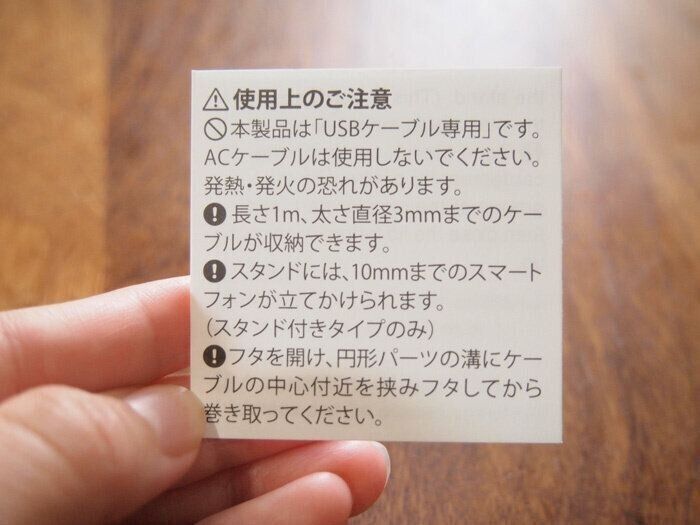 ⚠使用上のご注意
🚫本製品は「USBケーブル専用」です。
ACケーブルは使用しないでください。
発熱・発火の恐れがあります。
❗長さ1m、太さ直径3mmまでのケー
ブルが収納できます。
❗スタンドには、10mmまでのスマート
フォンが立てかけられます。
（スタンド付きタイプのみ）
❗フタを開け、円形パーツの溝にケー
ブルの中心付近を挟みフタしてから
巻き取ってください。